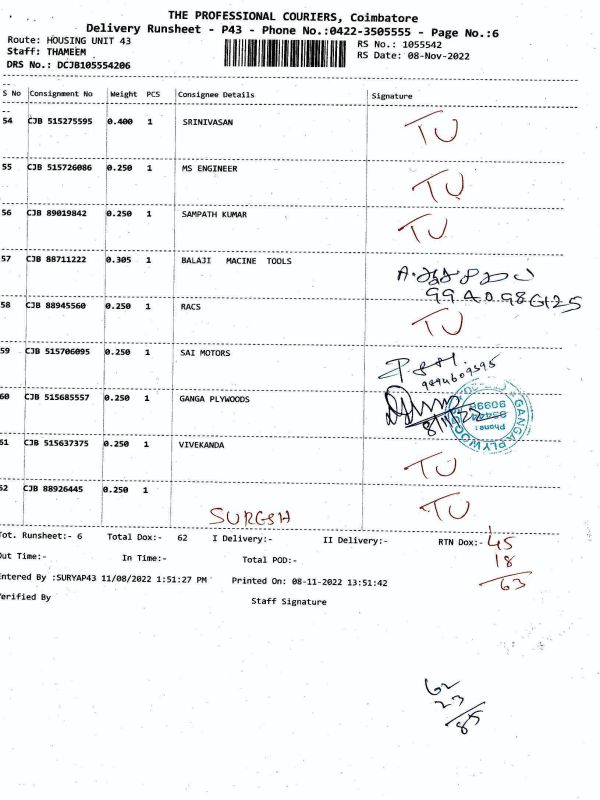 THE PROFESSIONAL COURIERS, Coimbatore
Delivery Runsheet - P43 - Phone No.:0422-3505555 - Page No.:6
Route: HOUSING UNIT 43
RS No.: 1055542
Staff: THAMEEM
RS Date: 08-Nov-2022
DRS No.: DCJB105554206
S No Consignment No Weight PCS Consignee Details Signature
54 CJB 515275595 0.400 1 SRINIVASAN TU
55 CJB 515726086 0.250 1 MS ENGINEER TU
56 CJB 89019842 0.250 1 SAMPATH KUMAR TU
57 CJB 88711222 0.305 1 BALAJI MACINE TOOLS
58 CJB 88945560 0.250 1 RACS TU
59 CJB 515706095 0.250 1 SAI MOTORS
9894609595
60 CJB 515685557 0.250 1 GANGA PLYWOODS
8/11/22
GANGA PLYWOODS
Phone:
61 CJB 515637375 0.250 1 VIVEKANDA TU
62 CJB 88926445 0.250 1 TU
SURGSH
Tot. Runsheet:- 6 Total Dox:- 62 I Delivery:- II Delivery:- RTN Dox:- 45
Out Time:- In Time:- Total POD:- 18
Entered By :SURYAP43 11/08/2022 1:51:27 PM Printed On: 08-11-2022 13:51:42 63
Verified By Staff Signature
62
23
85